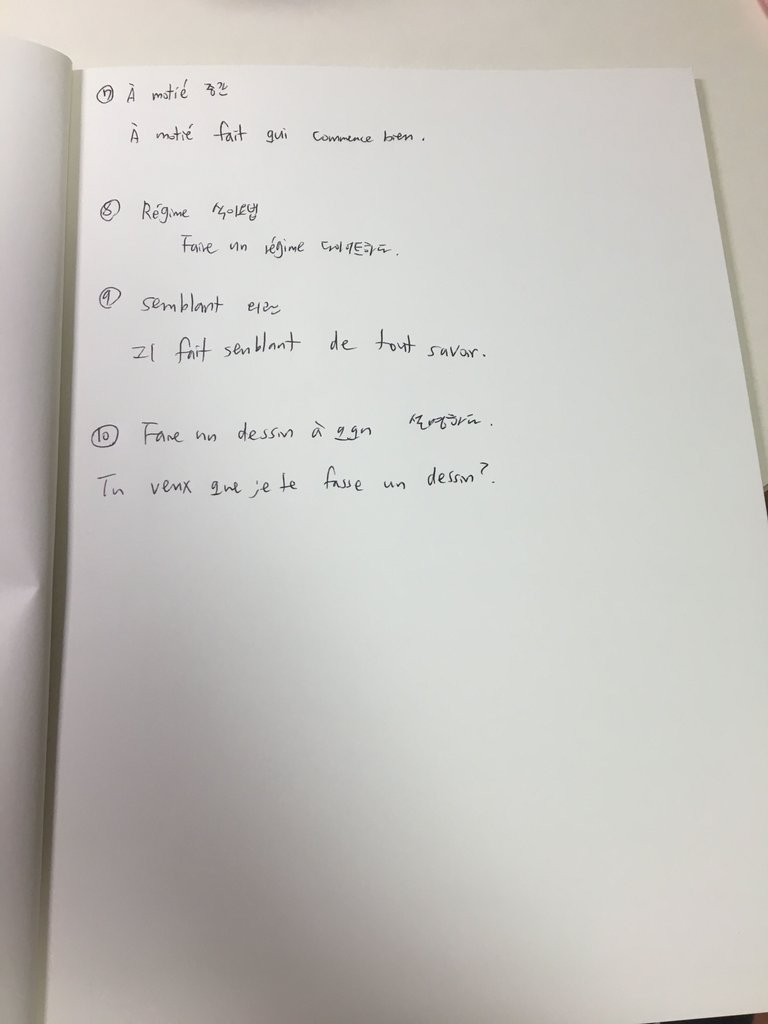 ⑦ À motié 중간
À motié fait qui commence bien.
⑧ Régime 식이요법
Faire un régime 다이어트하다.
⑨ semblant
Il fait senblant de tout savoir.
⑩ Faire un dessin à qqn 설명하다.
Tu veux que je te fasse un dessin?.